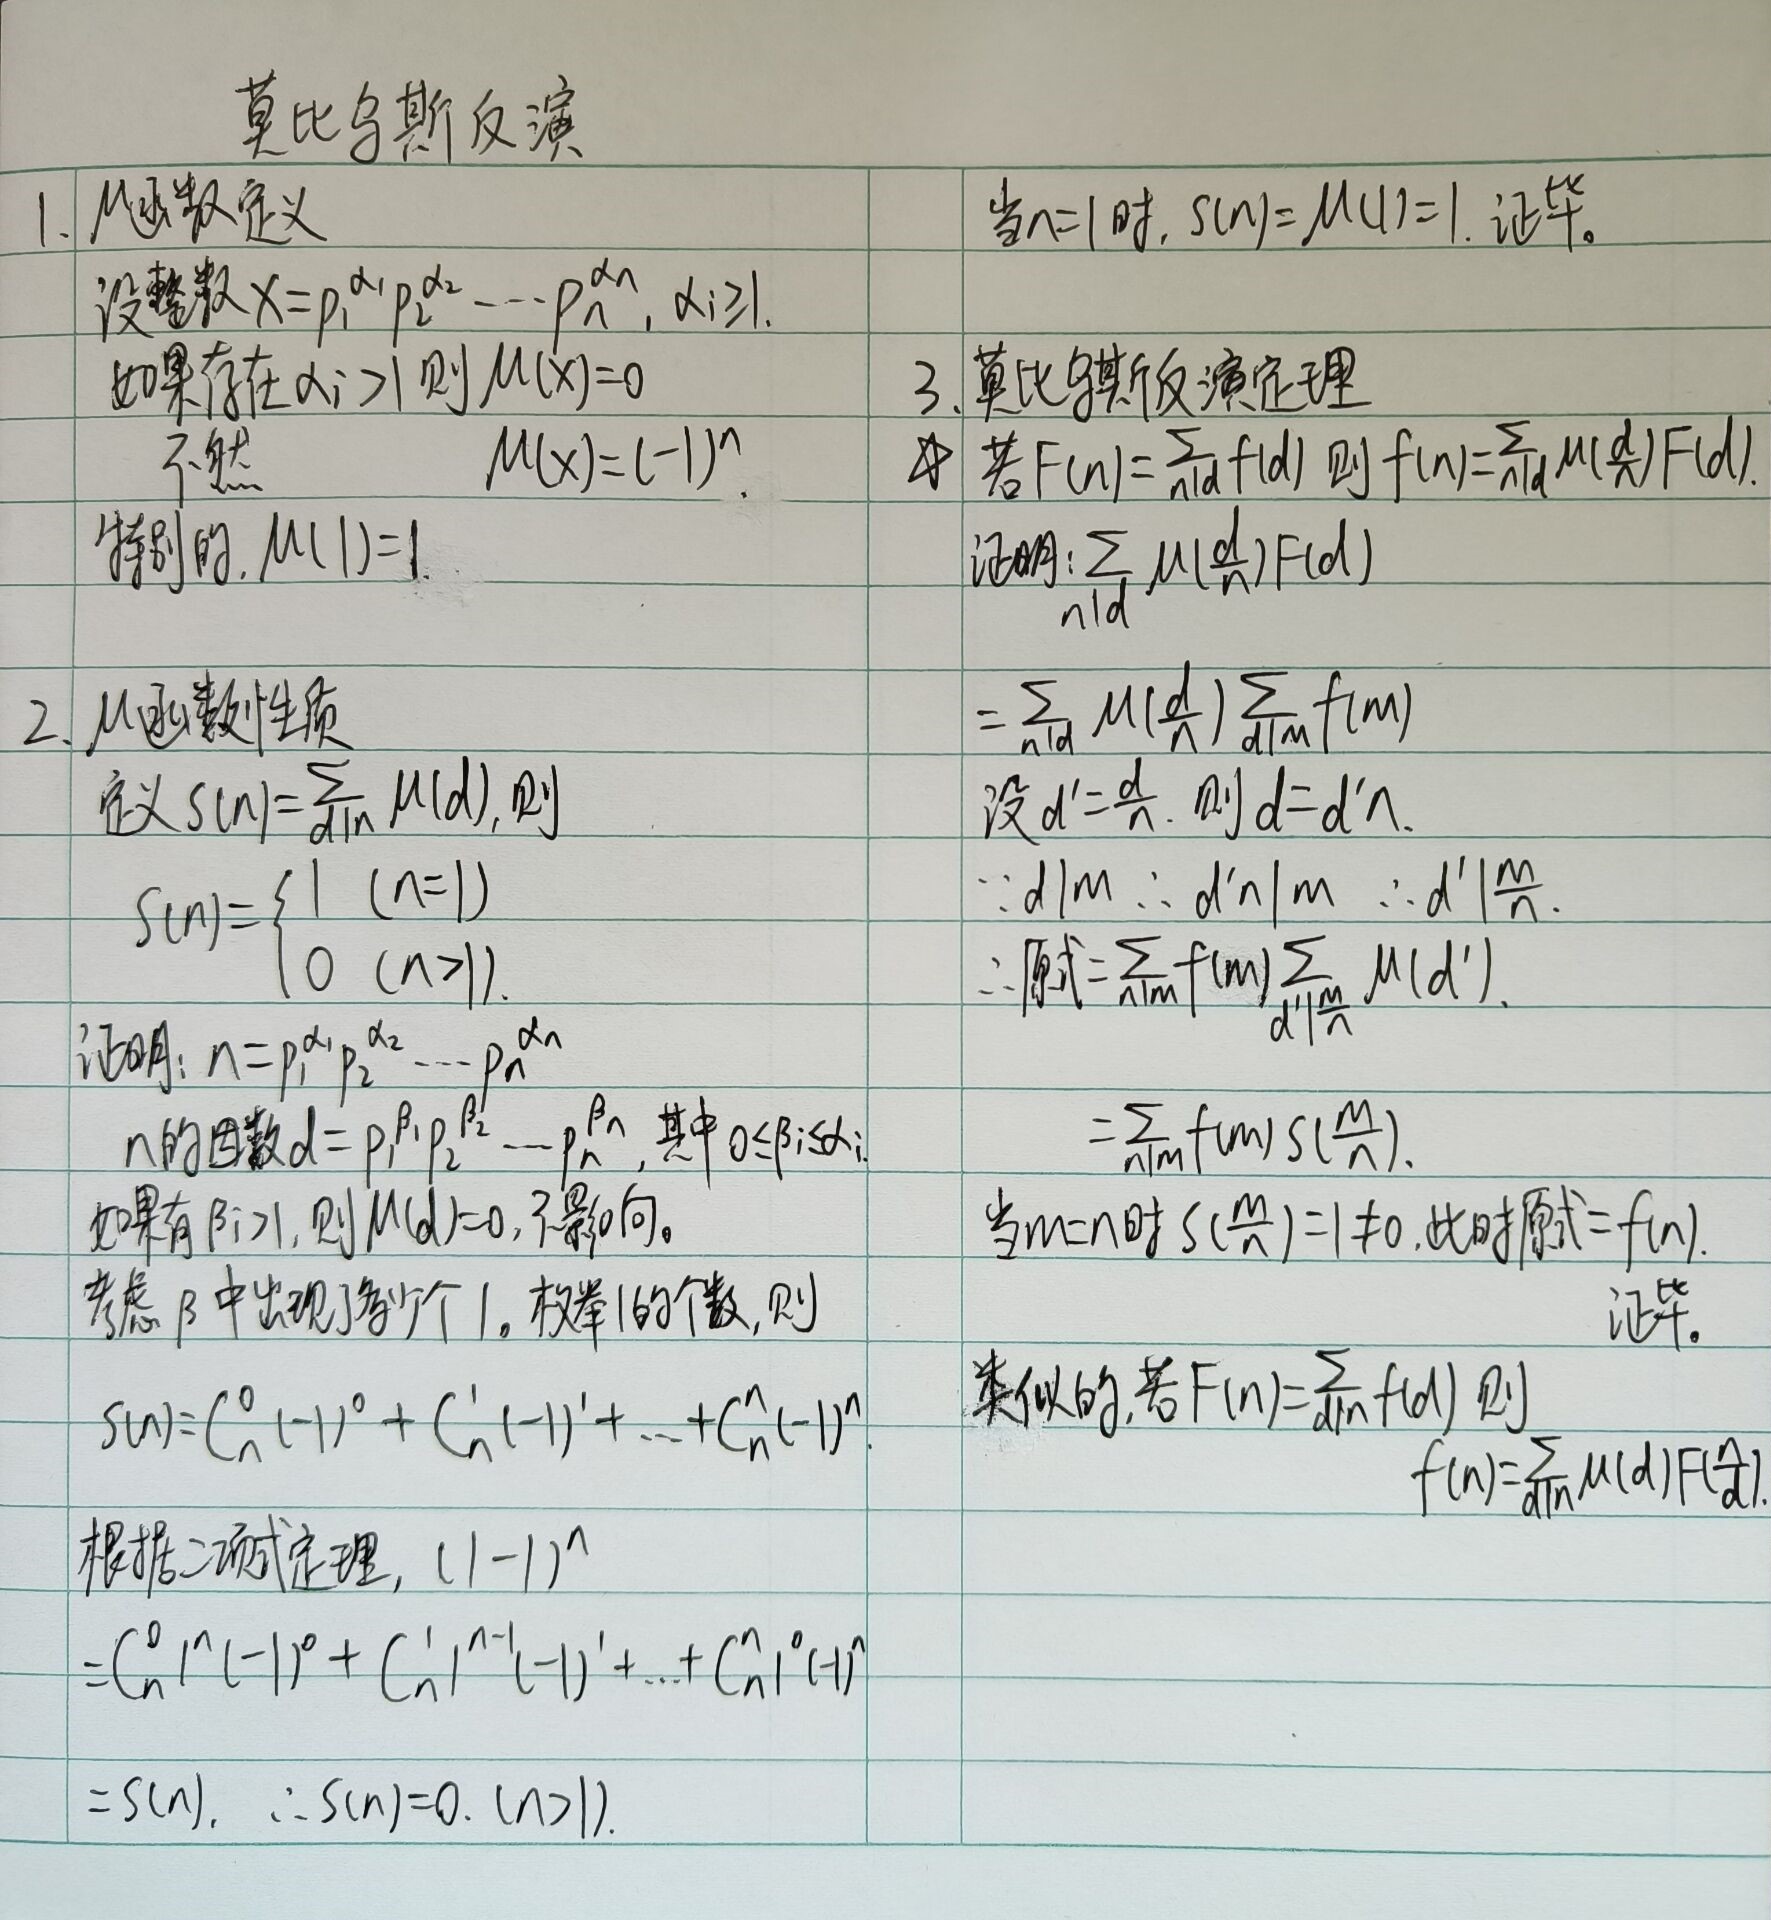 莫比乌斯反演
1. μ函数定义
设整数 x=p₁^α₁ p₂^α₂ ⋯ pₙ^αₙ, αi≥1.
如果存在αi>1则μ(x)=0
不然 μ(x)=(-1)ⁿ.
特别的, μ(1)=1.
2. μ函数性质
定义 S(n)=∑_{d|n} μ(d), 则
S(n)={1 (n=1)
0 (n>1).
证明: n=p₁^α₁ p₂^α₂ ⋯ pₙ^αₙ
n的因数d=p₁^β₁ p₂^β₂ ⋯ pₙ^βₙ, 其中 0≤βi≤αi.
如果有βi>1, 则μ(d)=0, 不影向。
考虑β中出现了多少个1。枚举1的个数, 则
S(n)=Cₙ⁰(-1)⁰+Cₙ¹(-1)¹+…+Cₙⁿ(-1)ⁿ.
根据二项式定理, (1-1)ⁿ
=Cₙ⁰1ⁿ(-1)⁰+Cₙ¹1ⁿ⁻¹(-1)¹+…+Cₙⁿ1⁰(-1)ⁿ
=S(n). ∴S(n)=0. (n>1).
当n=1时, S(n)=μ(1)=1. 证毕。
3. 莫比乌斯反演定理
☆ 若F(n)=∑_{n|d} f(d) 则 f(n)=∑_{n|d} μ(d/n)F(d).
证明: ∑_{n|d} μ(d/n)F(d)
=∑_{n|d} μ(d/n) ∑_{d|m} f(m)
设d'=d/n. 则d=d'n.
∵d|m ∴d'n|m ∴d'|m/n.
∴原式=∑_{n|m} f(m) ∑_{d'|m/n} μ(d').
=∑_{n|m} f(m) S(m/n).
当m=n时 S(m/n)=1≠0, 此时原式=f(n).
证毕。
类似的, 若F(n)=∑_{d|n} f(d) 则
f(n)=∑_{d|n} μ(d)F(n/d).